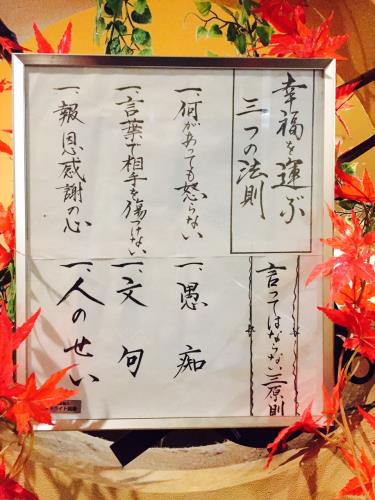 幸福を運ぶ
三つの法則
一、何があっても怒らない
一、言葉で相手を傷つけない
一、報恩感謝の心
言ってはならない三原則
一、愚痴
一、文句
一、人のせい